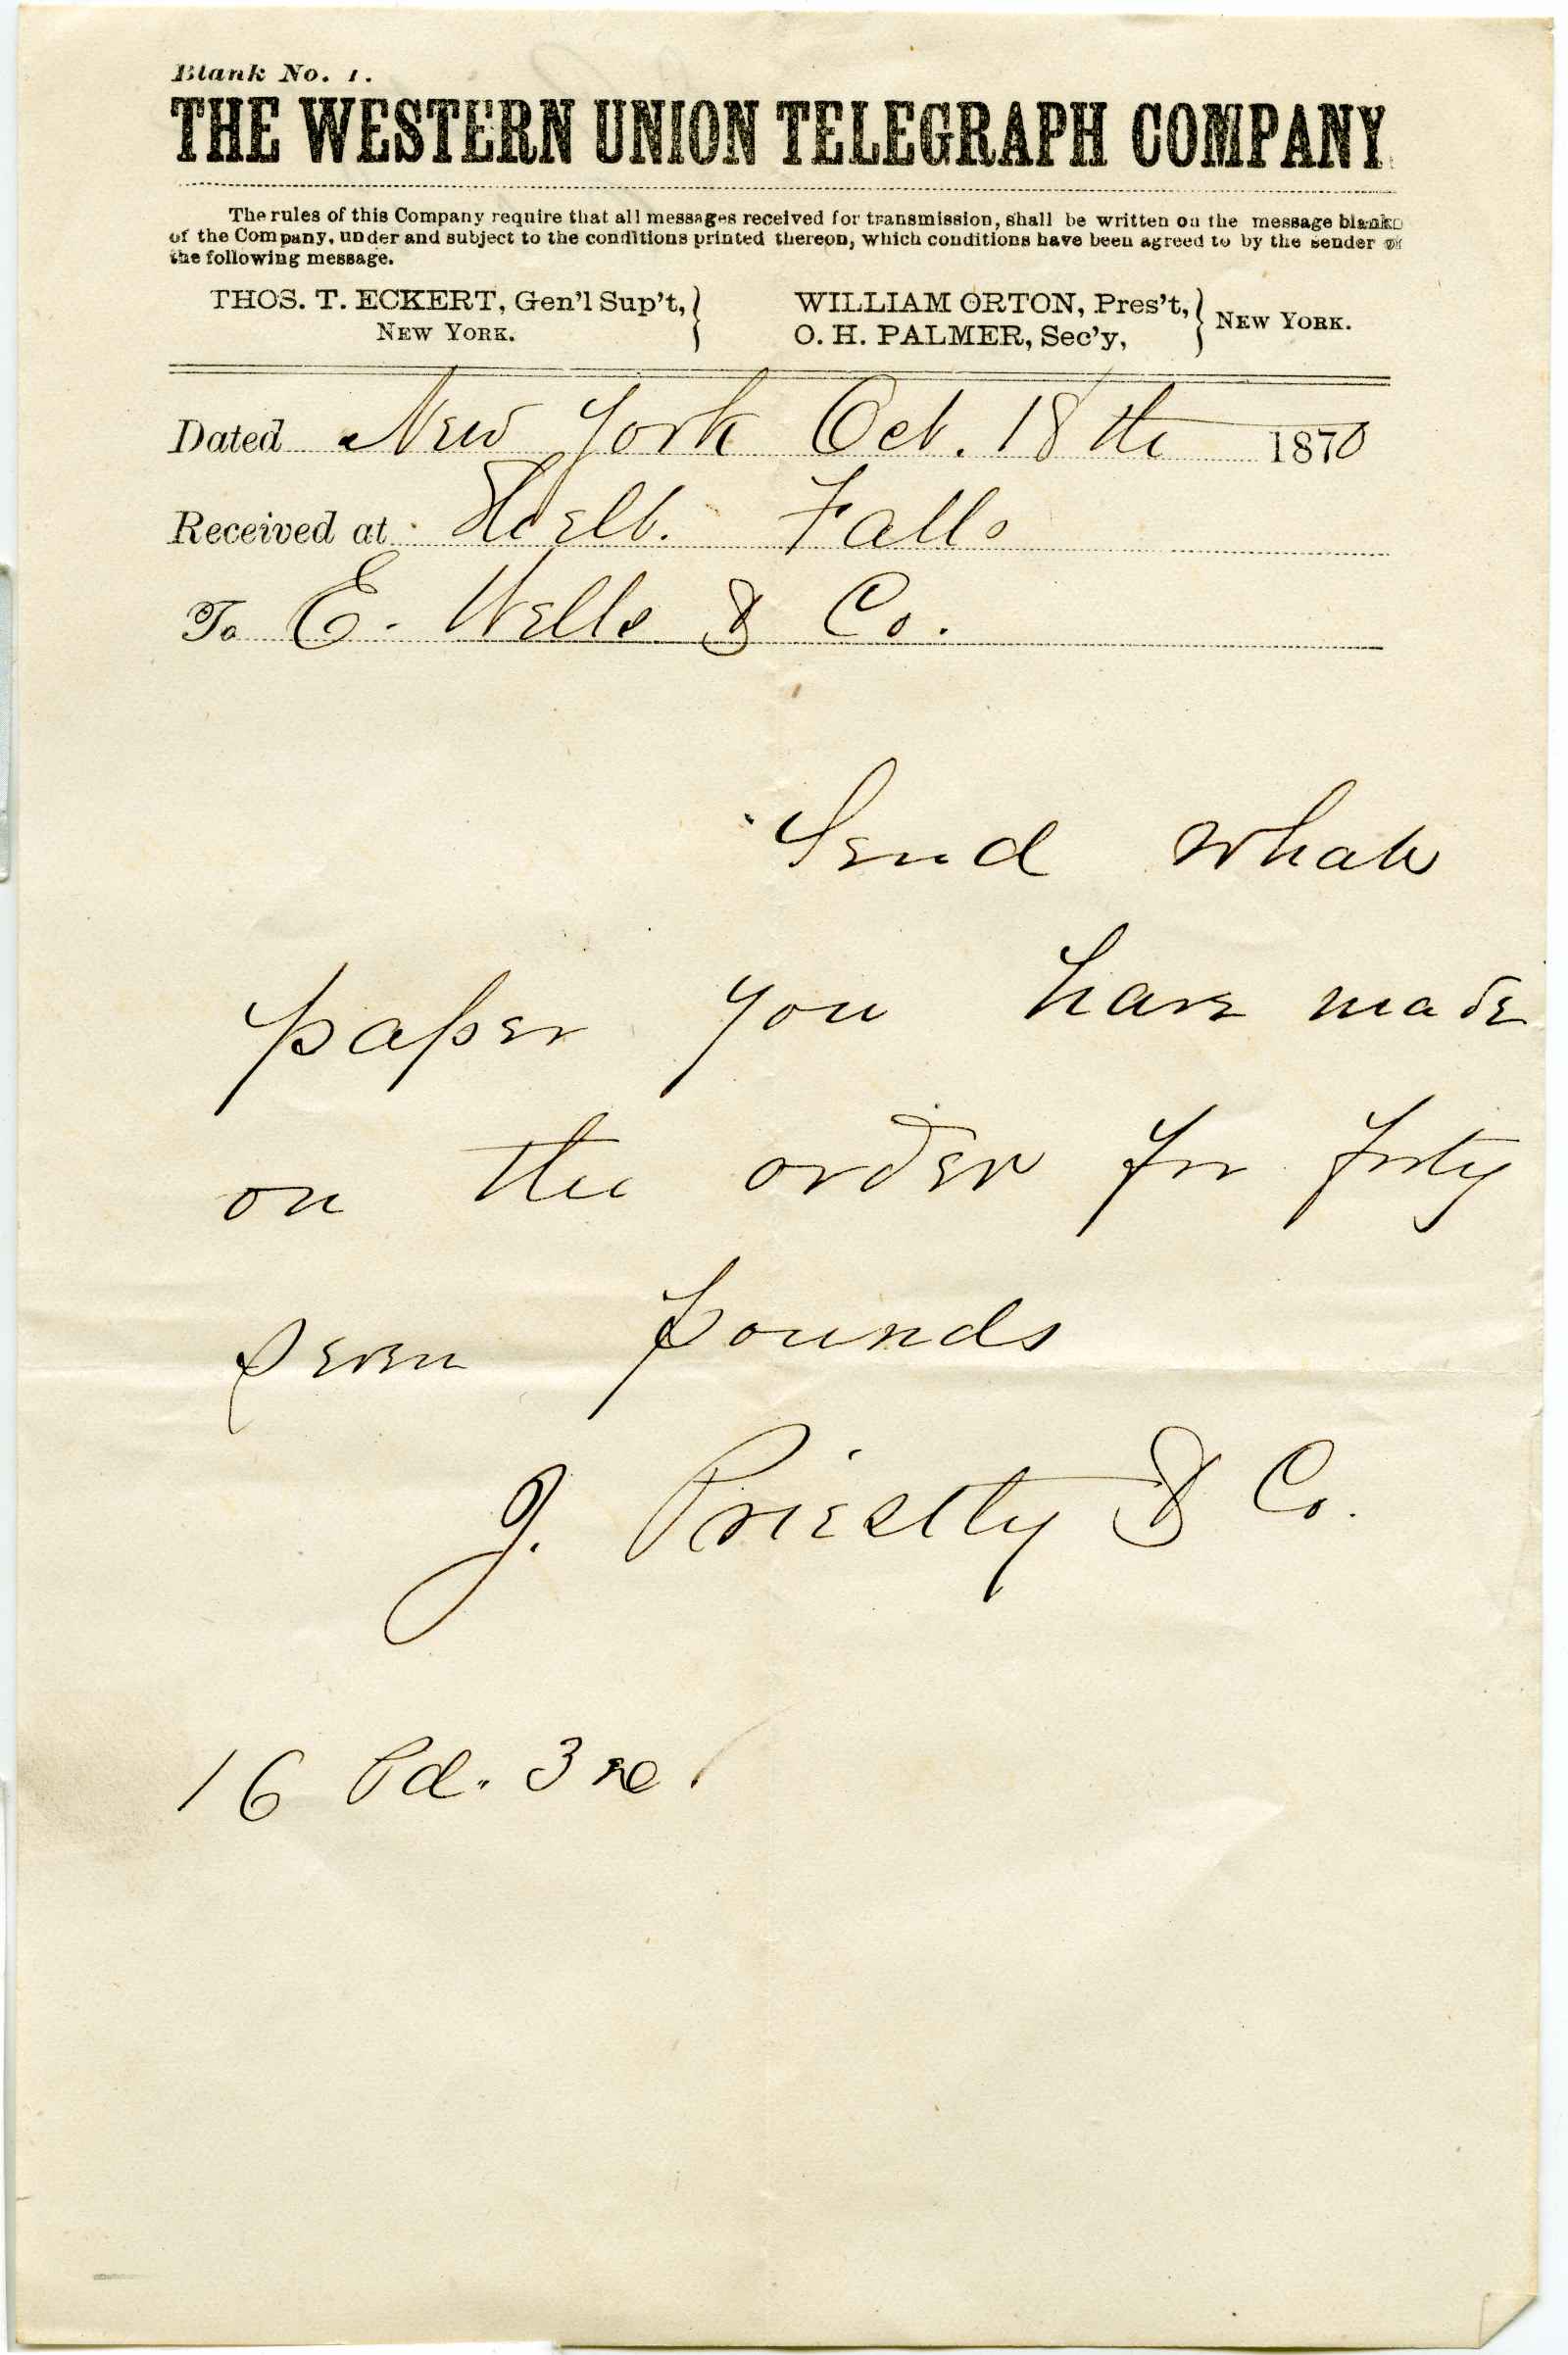 Blank No. 1.
THE WESTERN UNION TELEGRAPH COMPANY.
The rules of this Company require that all messages received for transmission, shall be written on the message blanks
of the Company, under and subject to the conditions printed thereon, which conditions have been agreed to by the sender of
the following message.
THOS. T. ECKERT, Gen'l Sup't,
NEW YORK.
WILLIAM ORTON, Pres't,
O. H. PALMER, Sec'y,
NEW YORK.
Dated New York Oct. 18th 1870
Received at Falls
To E. Wells & Co.
Send what
paper you have made
on the order for forty
seven pounds
J. Priestly & Co.
16 Pd. 3